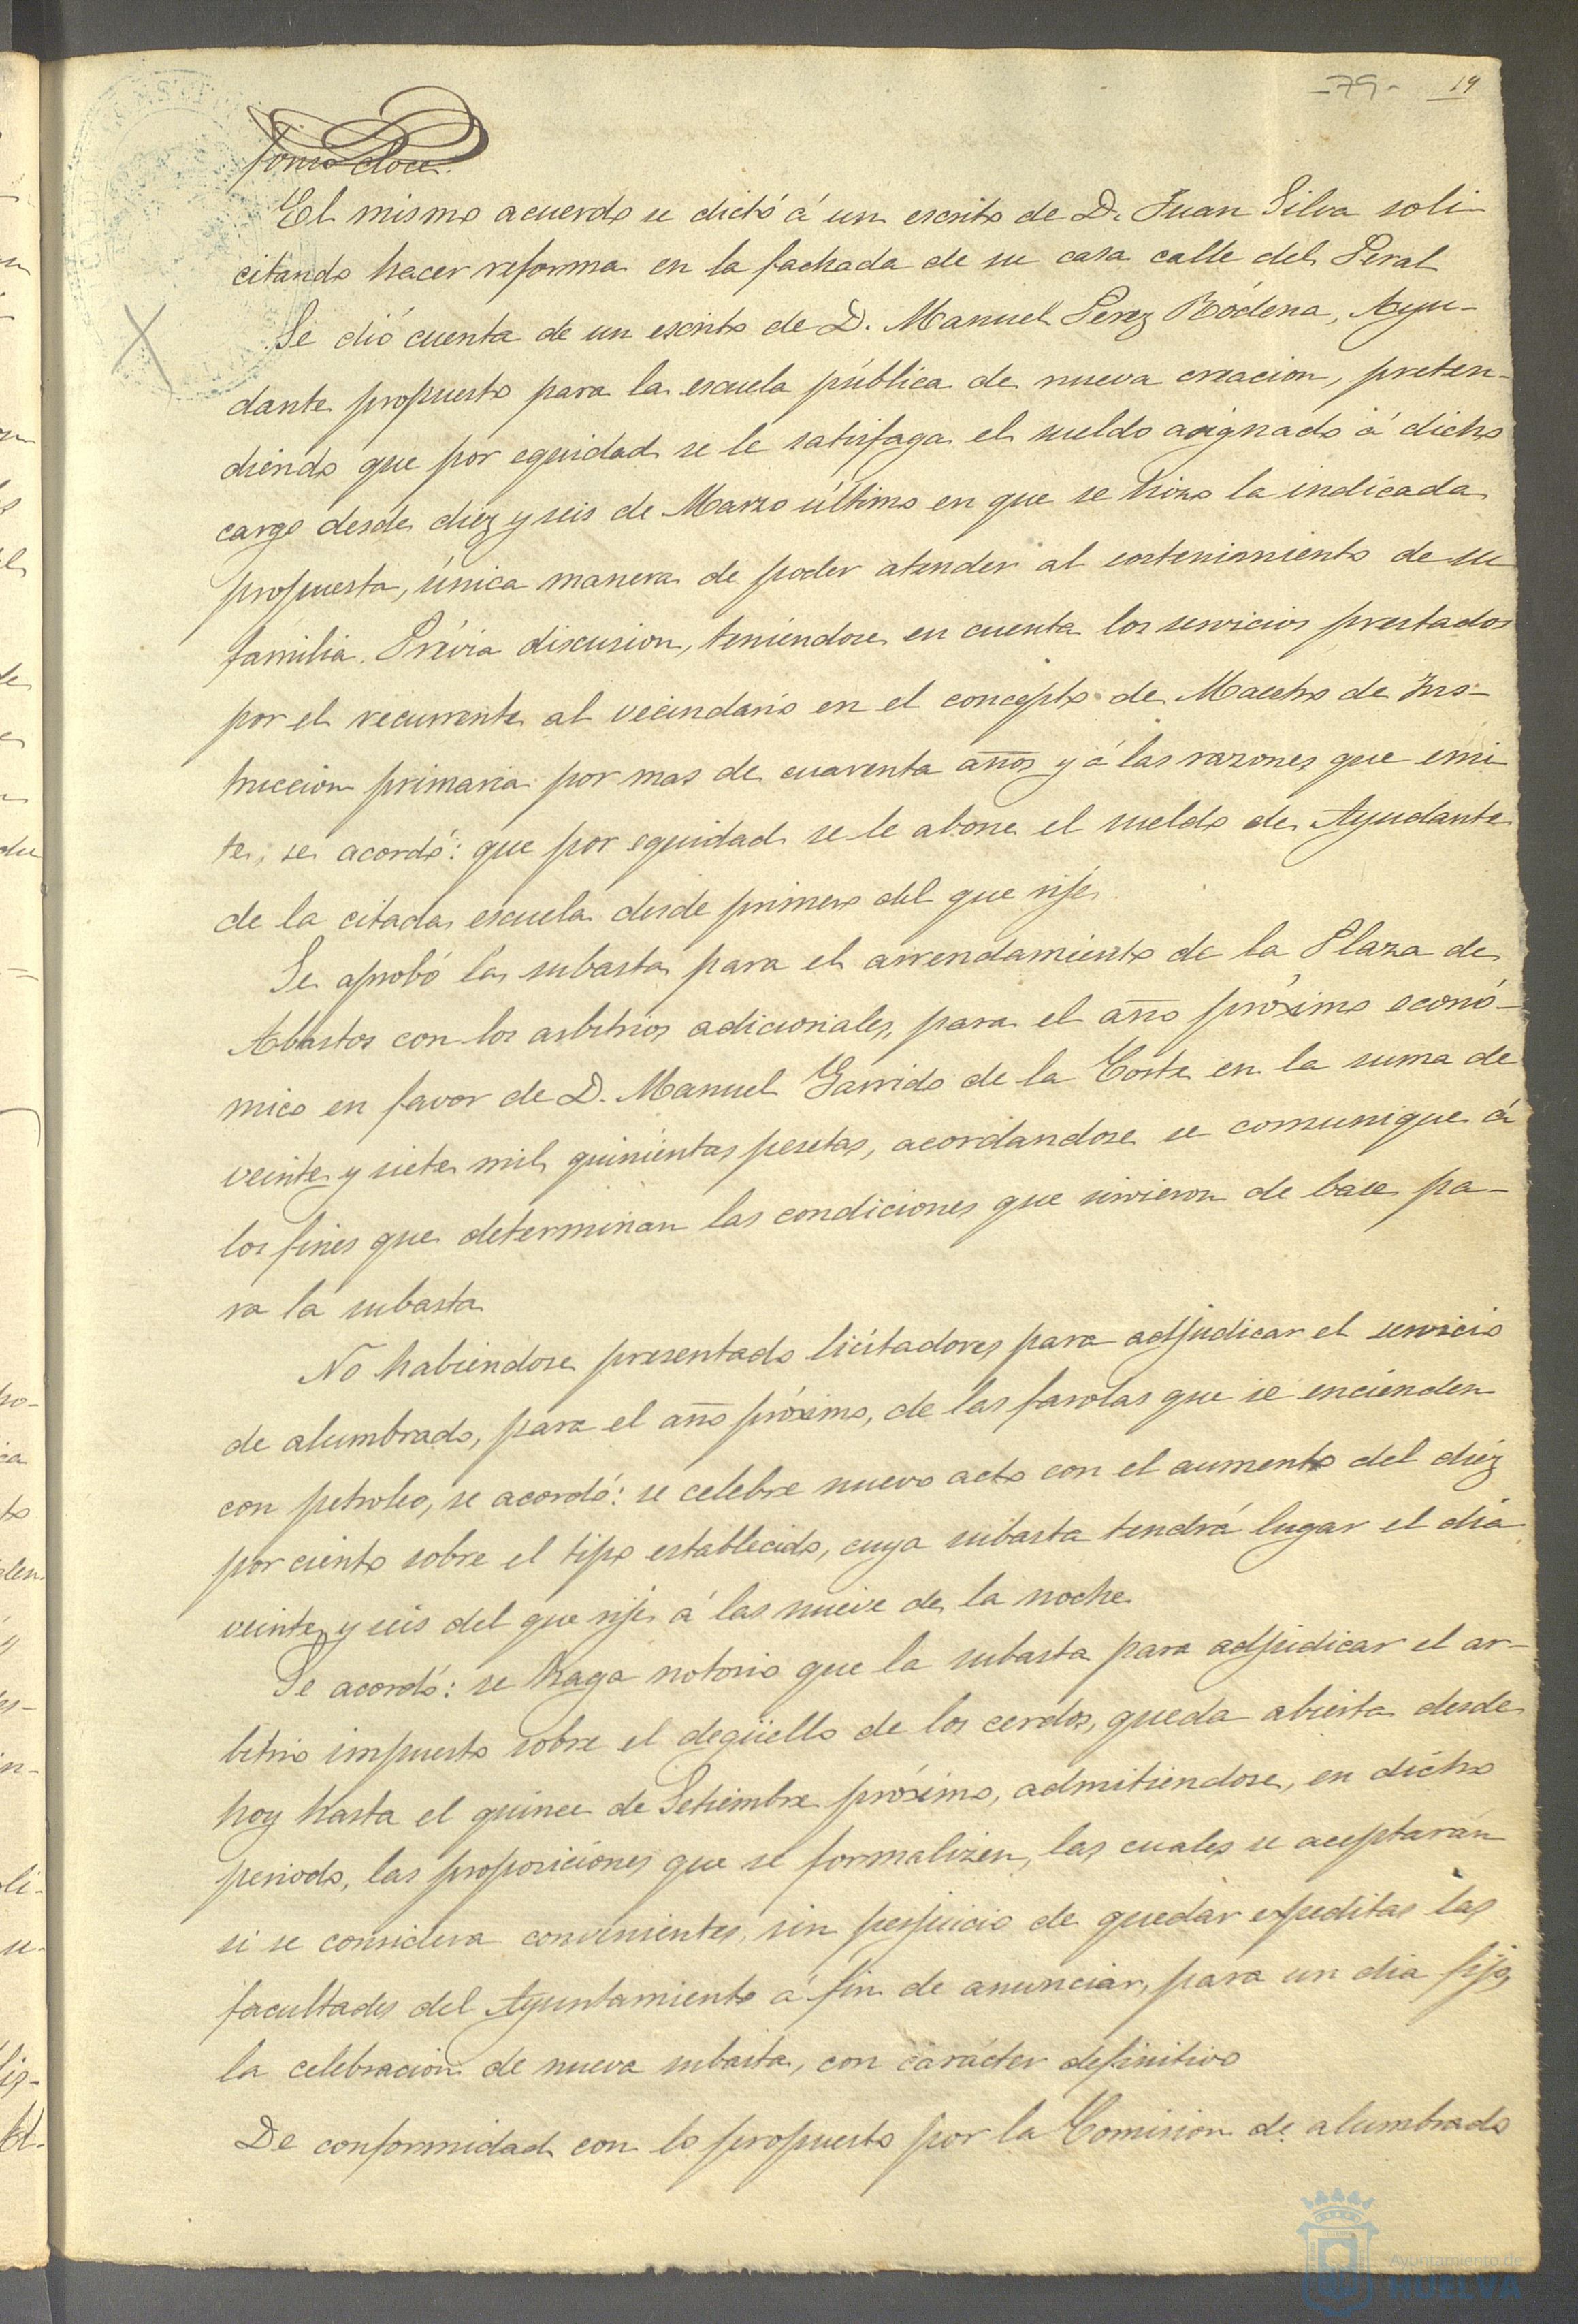 -79- 19
fonso doce.
El mismo acuerdo se dictó á un escrito de D. Juan Silva soli
citando hacer reforma en la fachada de su casa calle del Peral
Se dió cuenta de un escrito de D. Manuel Perez Ródena, Ayu-
dante propuesto para la escuela pública de nueva creacion, preten-
diendo que por equidad se le satisfaga el sueldo asignado á dicho
cargo desde diez y seis de Marzo último en que se hizo la indicada
propuesta, única manera de poder atender al sostenimiento de su
familia. Prévia discusion, teniéndose en cuenta los servicios prestados
por el recurrente al vecindario en el concepto de Maestro de Ins-
truccion primaria por mas de cuarenta años y á las razones que emi
te, se acordó: que por equidad se le abone el sueldo de Ayudante
de la citada escuela desde primero del que rije.
Se aprobó la subasta para el arrendamiento de la Plaza de
Abastos con los arbitrios adicionales, para el año próximo econó-
mico en favor de D. Manuel Garrido de la Corte en la suma de
veinte y siete mil quinientas pesetas, acordandose se comunique á
los fines que determinan las condiciones que sirvieron de base pa-
ra la subasta
No habiendose presentado licitadores para adjudicar el servicio
de alumbrado, para el año próximo, de las farolas que se encienden
con petroleo, se acordó: se celebre nuevo acto con el aumento del diez
por ciento sobre el tipo establecido, cuya subasta tendrá lugar el dia
veinte y seis del que rije á las nueve de la noche
Se acordó: se haga notorio que la subasta para adjudicar el ar-
bitrio impuesto sobre el degüello de los cerdos, queda abierta desde
hoy hasta el quince de Setiembre próximo, admitiendose, en dicho
periodo, las proposiciones que se formalizen, las cuales se aceptarán
si se considera convenientes, sin perjuicio de quedar expeditas las
facultades del Ayuntamiento á fin de anunciar, para un dia fijo,
la celebracion de nueva subasta, con carácter definitivo
De conformidad con lo propuesto por la Comision de alumbrado
Ayuntamiento de
HUELVA